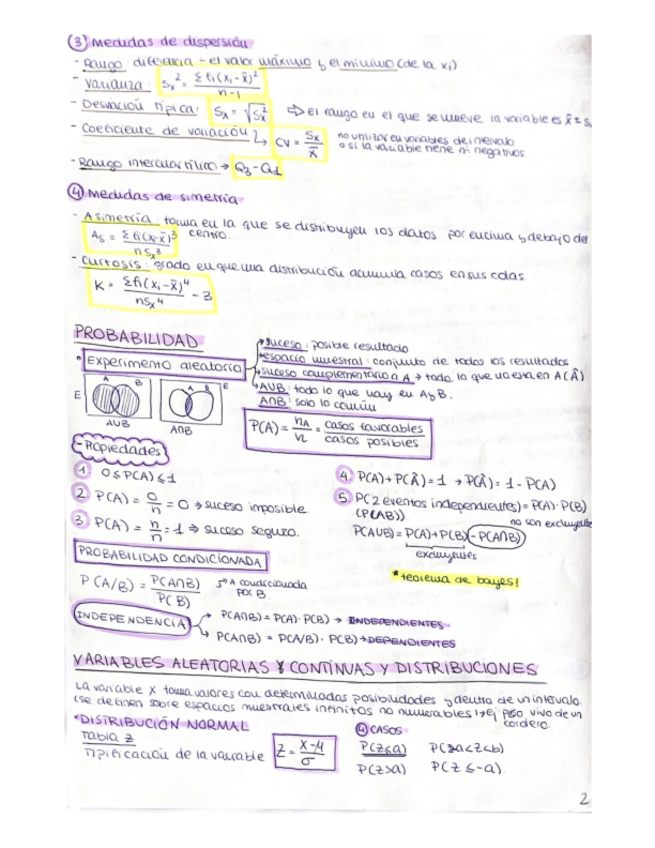 ③ Medidas de dispersión
- Rango diferencia - el valor máximo y el mínimo (de la xi)
- Varianza: Sx² = Σfi(xi-x̄)² / n-1
- Desviación típica: Sx = √Sx² ⇨ El rango en el que se mueve la variable es x̄ ± Sx
- Coeficiente de variación ↳ CV = Sx / x̄ no utilizar en variables de intervalo
o si la variable tiene nº negativos
- Rango intercuartílico → Q3 - Q1
④ Medidas de simetría
- Asimetría: forma en la que se distribuyen los datos por encima y debajo del
centro.
As = Σfi(xi-x̄)³ / nSx³
- Curtosis: grado en que una distribución acumula casos en sus colas.
K = Σfi(xi-x̄)⁴ / nSx⁴ - 3
PROBABILIDAD
• Experimento aleatorio
→ suceso: posible resultado
→ espacio muestral: conjunto de todos los resultados
→ suceso complementario a A → todo lo que no está en A (Â)
→ AUB: todo lo que hay en A y B.
A∩B: solo lo común
E A B
AUB
A B E
A∩B
P(A) = nA / n = casos favorables / casos posibles
- Propiedades
1 0 ≤ P(A) ≤ 1
2 P(A) = 0/n = 0 → suceso imposible.
3 P(A) = n/n = 1 ⇒ suceso seguro.
4. P(A) + P(Â) = 1 → P(Â) = 1 - P(A)
5. P(2 eventos independientes) = P(A) · P(B)
(P(AB))
no son excluyentes
P(AUB) = P(A) + P(B) - P(A∩B)
excluyentes
PROBABILIDAD CONDICIONADA
P(A/B) = P(A∩B) / P(B) → A condicionada
por B
* teorema de bayes!
INDEPENDENCIA
→ P(A∩B) = P(A) · P(B) → INDEPENDIENTES
→ P(A∩B) = P(A/B) · P(B) → DEPENDIENTES
VARIABLES ALEATORIAS Y CONTINUAS Y DISTRIBUCIONES
La variable X toma valores con determinadas posibilidades y dentro de un intervalo.
(se definen sobre espacios muestrales infinitos no numerables) → ej peso vivo de un
cordero.
• DISTRIBUCIÓN NORMAL
Tabla z
Tipificación de la variable Z = x-μ / σ
④ CASOS
P(z≤a) P(a<z<b)
P(z>a) P(z ≤ -a)
2